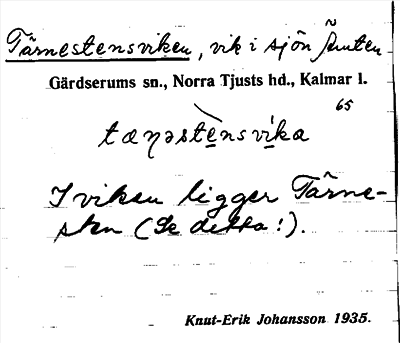 Tärnestensviken, vik i sjön Åmten
Gärdserums sn., Norra Tjusts hd., Kalmar l.
65
tæɳəste̱nsvi̱ka
I viken ligger Tärne-
sten (Se detta!).
Knut-Erik Johansson 1935.